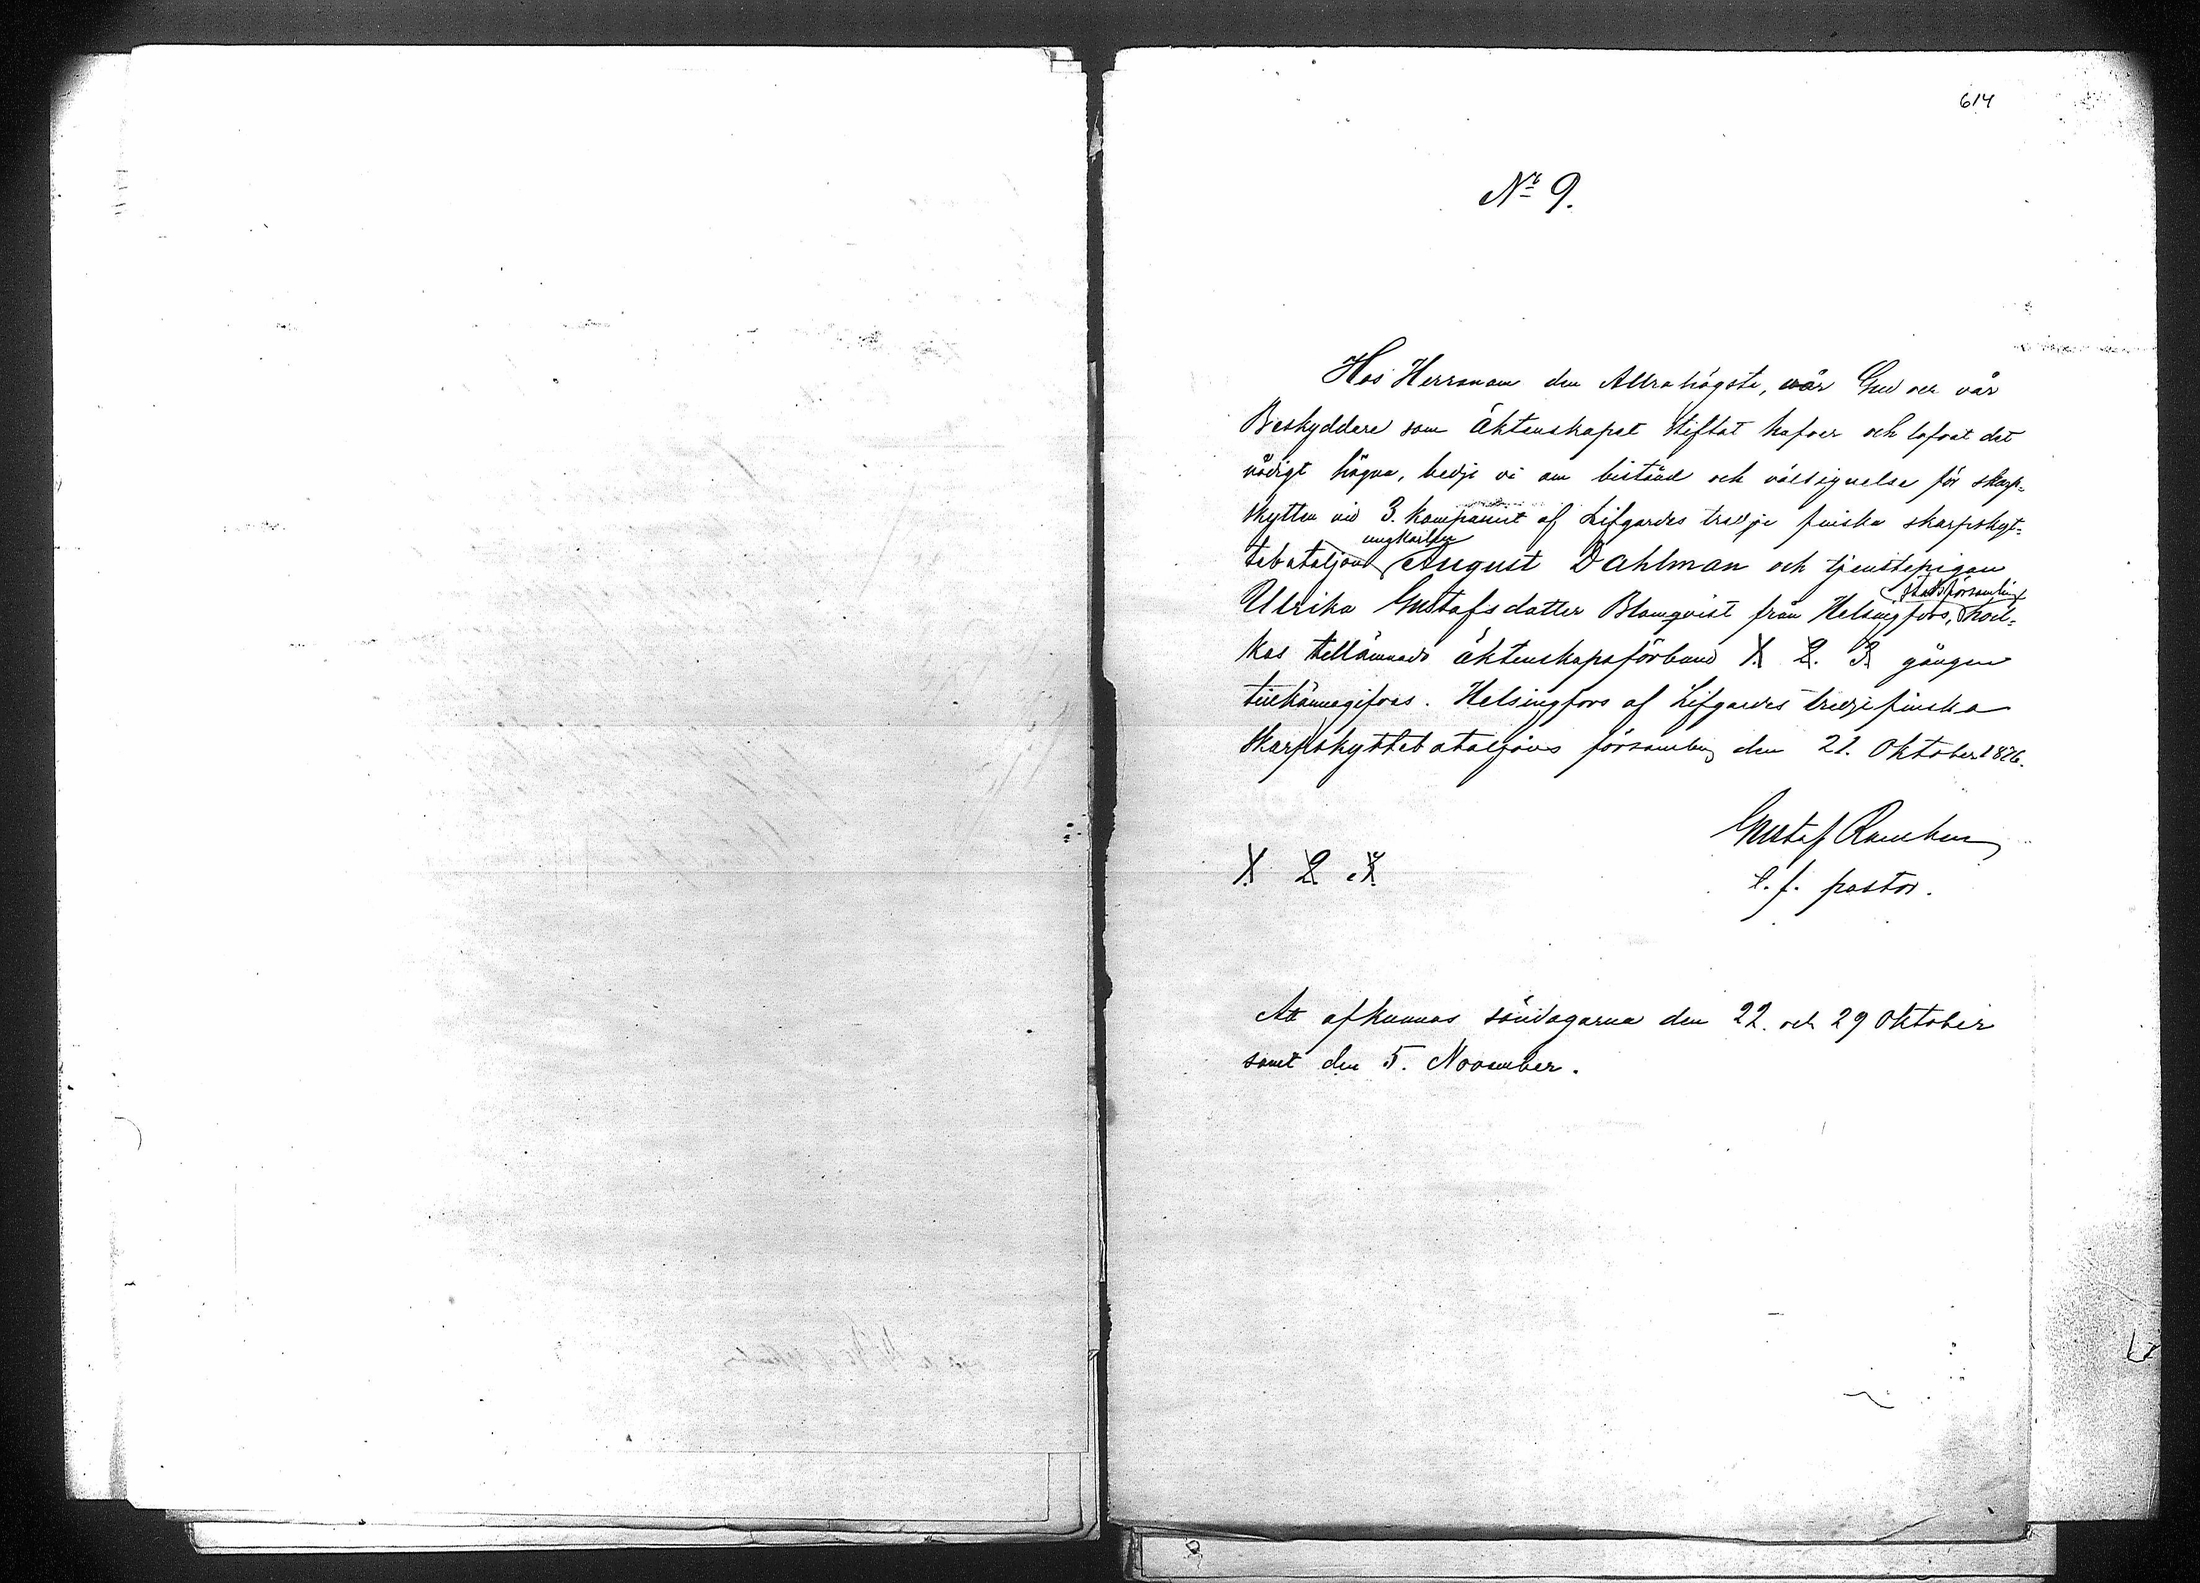 614
No 9.
Hos Herranom den Allrahögste, vår Gud och vår
Beskyddare som äktenskapet stiftat hafver och lofvat det
nådigt hägna, bedje vi om bistånd och välsignelse för skarp-
skytten vid 3. kompaniet af Lifgardes tredje finska skarpskyt-
ungkarlen
tebataljon August Dahlman och tjenstepigan
stadsförsamling
Ulrika Gustafsdotter Blomqvist från Helsingfors, hvil-
kas tillämnade äktenskapsförbund 1. 2. 3. gången
tillkännagifves. Helsingfors af Lifgardes tredje finska
skarpskyttebataljons församling den 21. Oktober 1876.
Gustaf
t. f. pastor.
1. 2. 3.
Att afkunnas söndagarna den 22. och 29 Oktober
samt den 5. November.